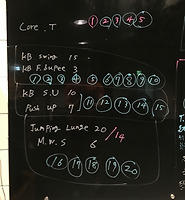 Core . T ① ② ③ ④ ⑤
KB Swing 15
KB F. Supee 3
① ② ③ ④ ⑤ ⑥ ⑦ ⑧ ⑨ ⑩
KB S.U 10
Push up 7
⑪ ⑫ ⑬ ⑭ ⑮
Jumping Lunge 20/14
M.W.S 6
⑯ ⑰ ⑱ ⑲ ⑳